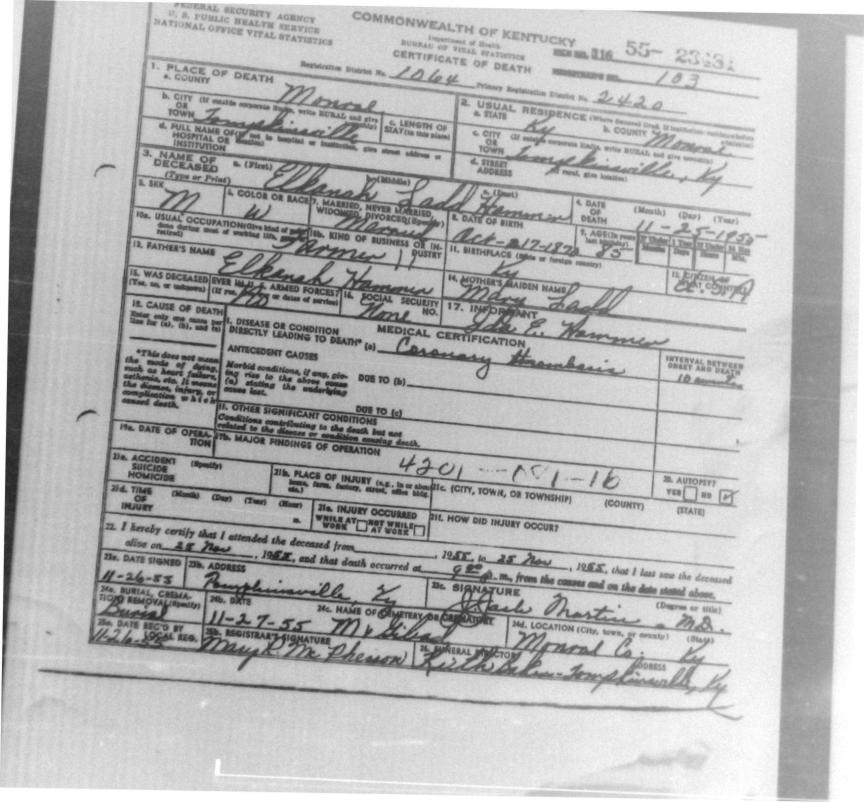 FEDERAL SECURITY AGENCY
U. S. PUBLIC HEALTH SERVICE
NATIONAL OFFICE VITAL STATISTICS
COMMONWEALTH OF KENTUCKY
Department of Health
BUREAU OF VITAL STATISTICS
CERTIFICATE OF DEATH
116 55-
Registration District No. 1064 Primary Registration District No. 2420
REGISTRAR'S NO. 103
1. PLACE OF DEATH
a. COUNTY Monroe
b. CITY (If outside corporate limits, write RURAL and give
OR
TOWN Tompkinsville
c. LENGTH OF
STAY (in this place)
d. FULL NAME OF (If not in hospital or institution, give street address or
HOSPITAL OR
INSTITUTION
2. USUAL RESIDENCE (Where deceased lived. If institution: residence before
a. STATE Ky b. COUNTY Monroe
c. CITY (If outside corporate limits, write RURAL and give
OR
TOWN Tompkinsville, Ky
d. STREET (If rural, give location)
ADDRESS
3. NAME OF
DECEASED
(Type or Print)
a. (First) b. (Middle) c. (Last)
Elkanah Ladd Hammer
4. DATE
OF
DEATH
(Month) (Day) (Year)
11-25-1955
5. SEX M
6. COLOR OR RACE W
7. MARRIED, NEVER MARRIED,
WIDOWED, DIVORCED (Specify)
Married
8. DATE OF BIRTH
Oct-
9. AGE (In years
last birthday) 85
10a. USUAL OCCUPATION (Give kind of work
done during most of working life, even if
retired) Farmer
10b. KIND OF BUSINESS OR IN-
DUSTRY
11. BIRTHPLACE (State or foreign country)
Ky
12. CITIZEN OF
WHAT COUNTRY?
13. FATHER'S NAME
Elkenah Hammer
14. MOTHER'S MAIDEN NAME
Mary Ladd
15. WAS DECEASED EVER IN U. S. ARMED FORCES?
(Yes, no, or unknown) (If yes, or dates of service)
No
16. SOCIAL SECURITY
NO. None
17. INFORMANT
E. Hammer
18. CAUSE OF DEATH
Enter only one cause per
line for (a), (b), and (c)
MEDICAL CERTIFICATION
I. DISEASE OR CONDITION
DIRECTLY LEADING TO DEATH* (a) Coronary thrombosis
INTERVAL BETWEEN
ONSET AND DEATH
10 minutes
*This does not mean
the mode of dying,
such as heart failure,
asthenia, etc. It means
the disease, injury, or
complication which
caused death.
ANTECEDENT CAUSES
Morbid conditions, if any, giv-
ing rise to the above cause
(a) stating the underlying
cause last.
DUE TO (b)
DUE TO (c)
II. OTHER SIGNIFICANT CONDITIONS
Conditions contributing to the death but not
related to the disease or condition causing death.
19a. DATE OF OPERA-
TION
19b. MAJOR FINDINGS OF OPERATION
4201
20. AUTOPSY?
YES NO
21a. ACCIDENT (Specify)
SUICIDE
HOMICIDE
21b. PLACE OF INJURY (e.g., in or about
home, farm, factory, street, office bldg.,
etc.)
21c. (CITY, TOWN, OR TOWNSHIP) (COUNTY) (STATE)
21d. TIME (Month) (Day) (Year) (Hour)
OF
INJURY m.
21e. INJURY OCCURRED
WHILE AT NOT WHILE
WORK AT WORK
21f. HOW DID INJURY OCCUR?
22. I hereby certify that I attended the deceased from , 1955, to 25 Nov , 1955, that I last saw the deceased
alive on 25 Nov , 1955, and that death occurred at m., from the causes and on the date stated above.
23a. DATE SIGNED
11-26-55
23b. ADDRESS
Tompkinsville, Ky
23c. SIGNATURE (Degree or title)
Jack Martin M.D.
24a. BURIAL, CREMA-
TION, REMOVAL (Specify)
Burial
24b. DATE
11-27-55
24c. NAME OF CEMETERY OR CREMATORY
Mt Gilead
24d. LOCATION (City, town, or county) (State)
Monroe Co. Ky
25a. DATE REC'D BY
LOCAL REG.
11-26-55
25b. REGISTRAR'S SIGNATURE
Mary R. McPherson
26. FUNERAL DIRECTOR ADDRESS
Tompkinsville, Ky